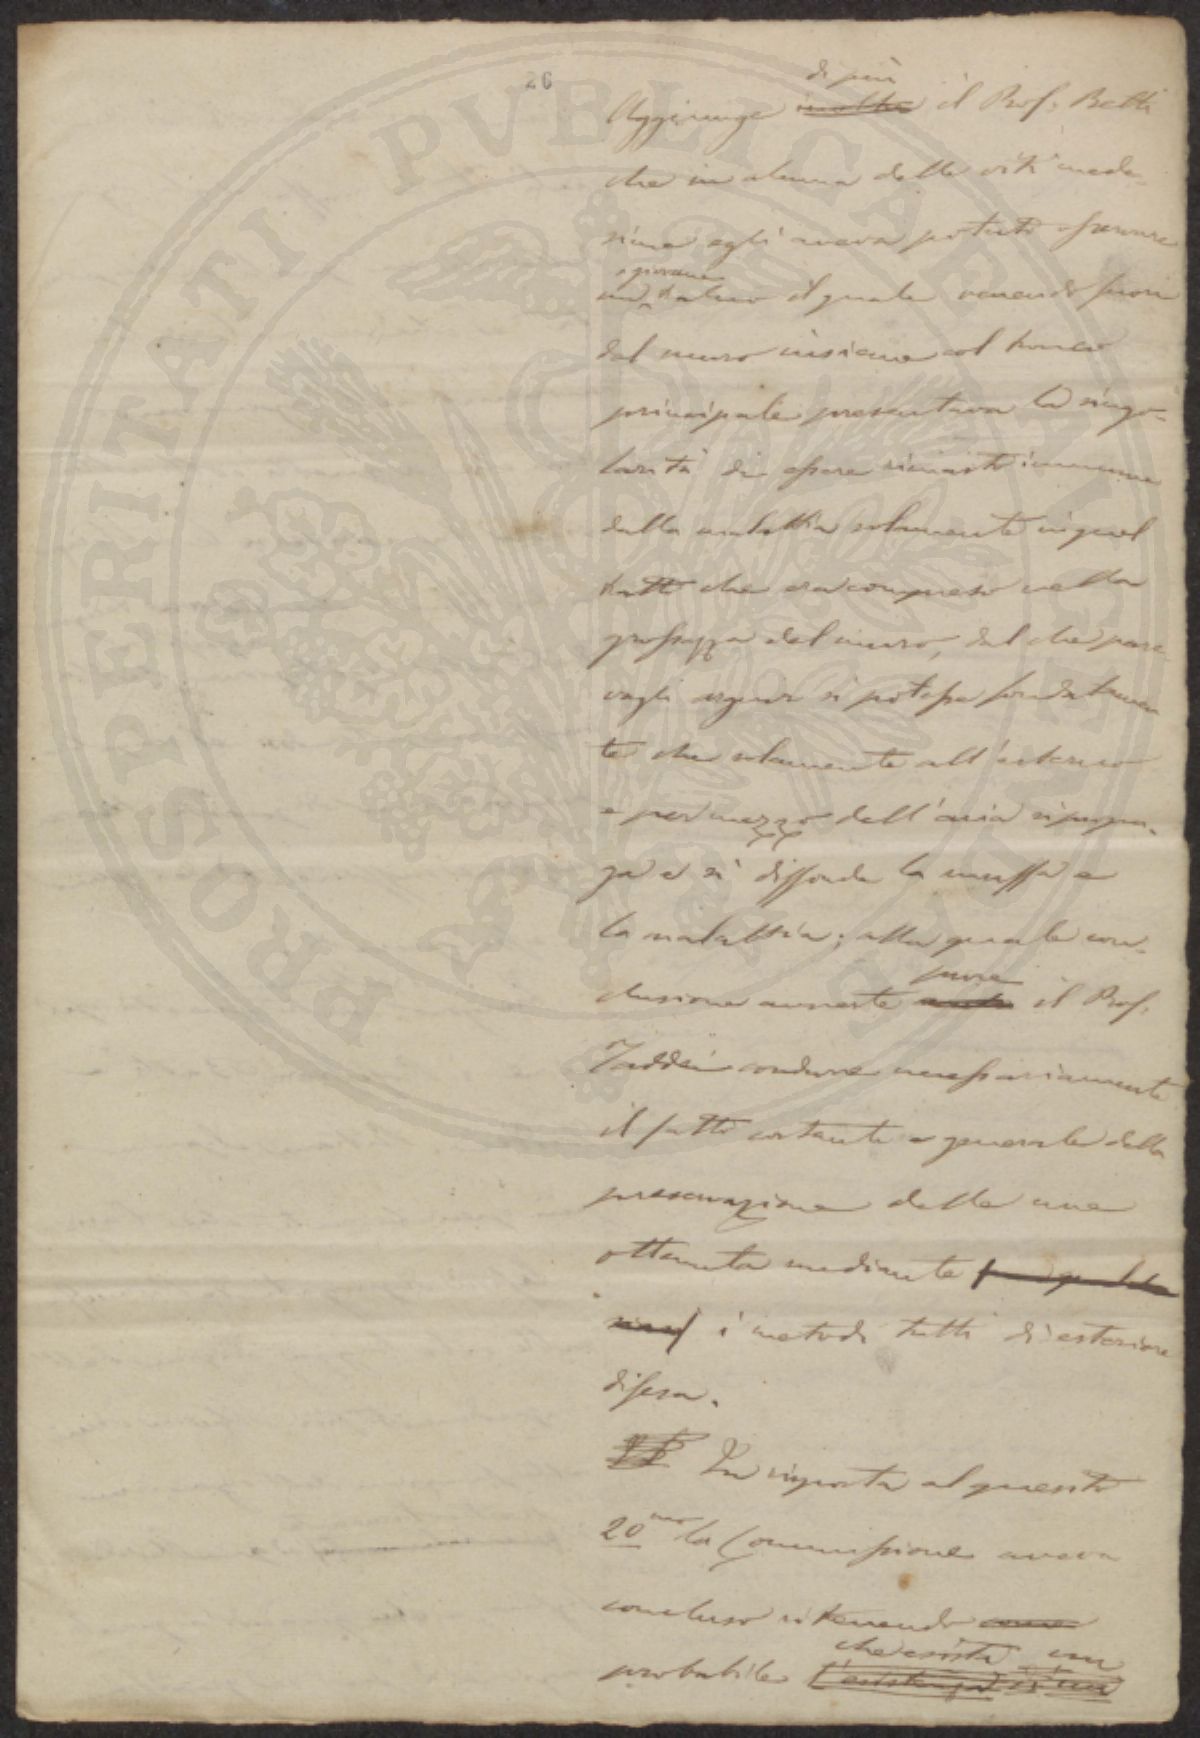 26
di più
Aggiunge inoltre il Prof. Betti
che in alcuna delle viti mede-
sime egli aveva potuto osservare
giovane
un tralcio il quale venendo fuori
dal muro insieme col tronco
principale presentava la singo-
larità di essere rimasto immune
dalla malattia solamente in quel
tratto che era compreso nella
grossezza del muro, dal che pare-
vagli arguir si potesse fondatamen
te che solamente all'esterno
e per mezzo dell'aria si propa-
ga e si diffonde la muffa e
la malattia; alla quale con-
pure
clusione avverte anche il Prof.
Taddei condurre necessariamente
il fatto costante e generale della
preservazione delle uve
ottenuta mediante
i metodi tutti di esteriore
difesa.
In risposta al quesito
20mo la Commissione aveva
concluso ritenendo come
che esista un
probabile l'esistenza di un